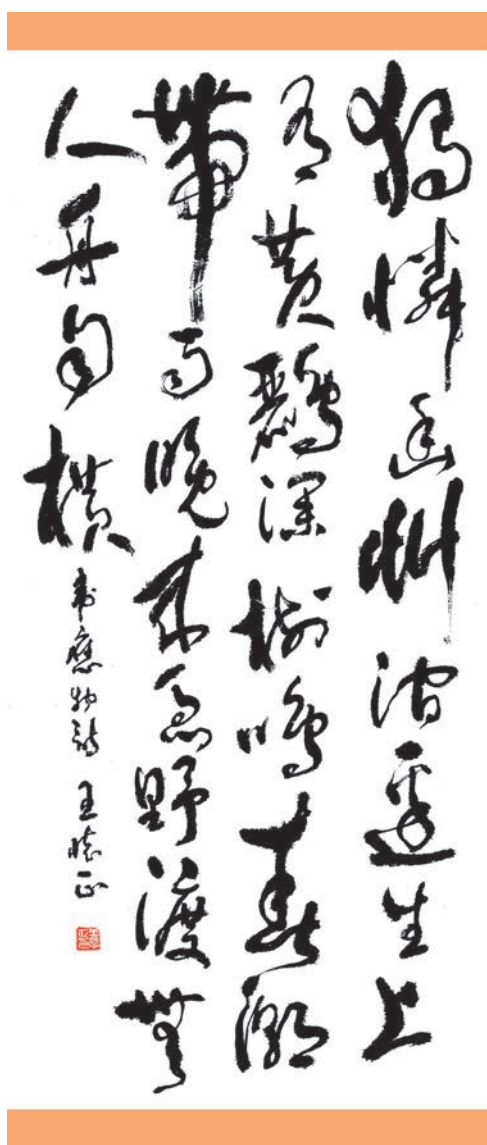 獨憐幽艸澗邊生上
有黃鸝深樹鳴春潮
帶雨晚來急野渡無
人舟自橫
韋應物詩 王懷正